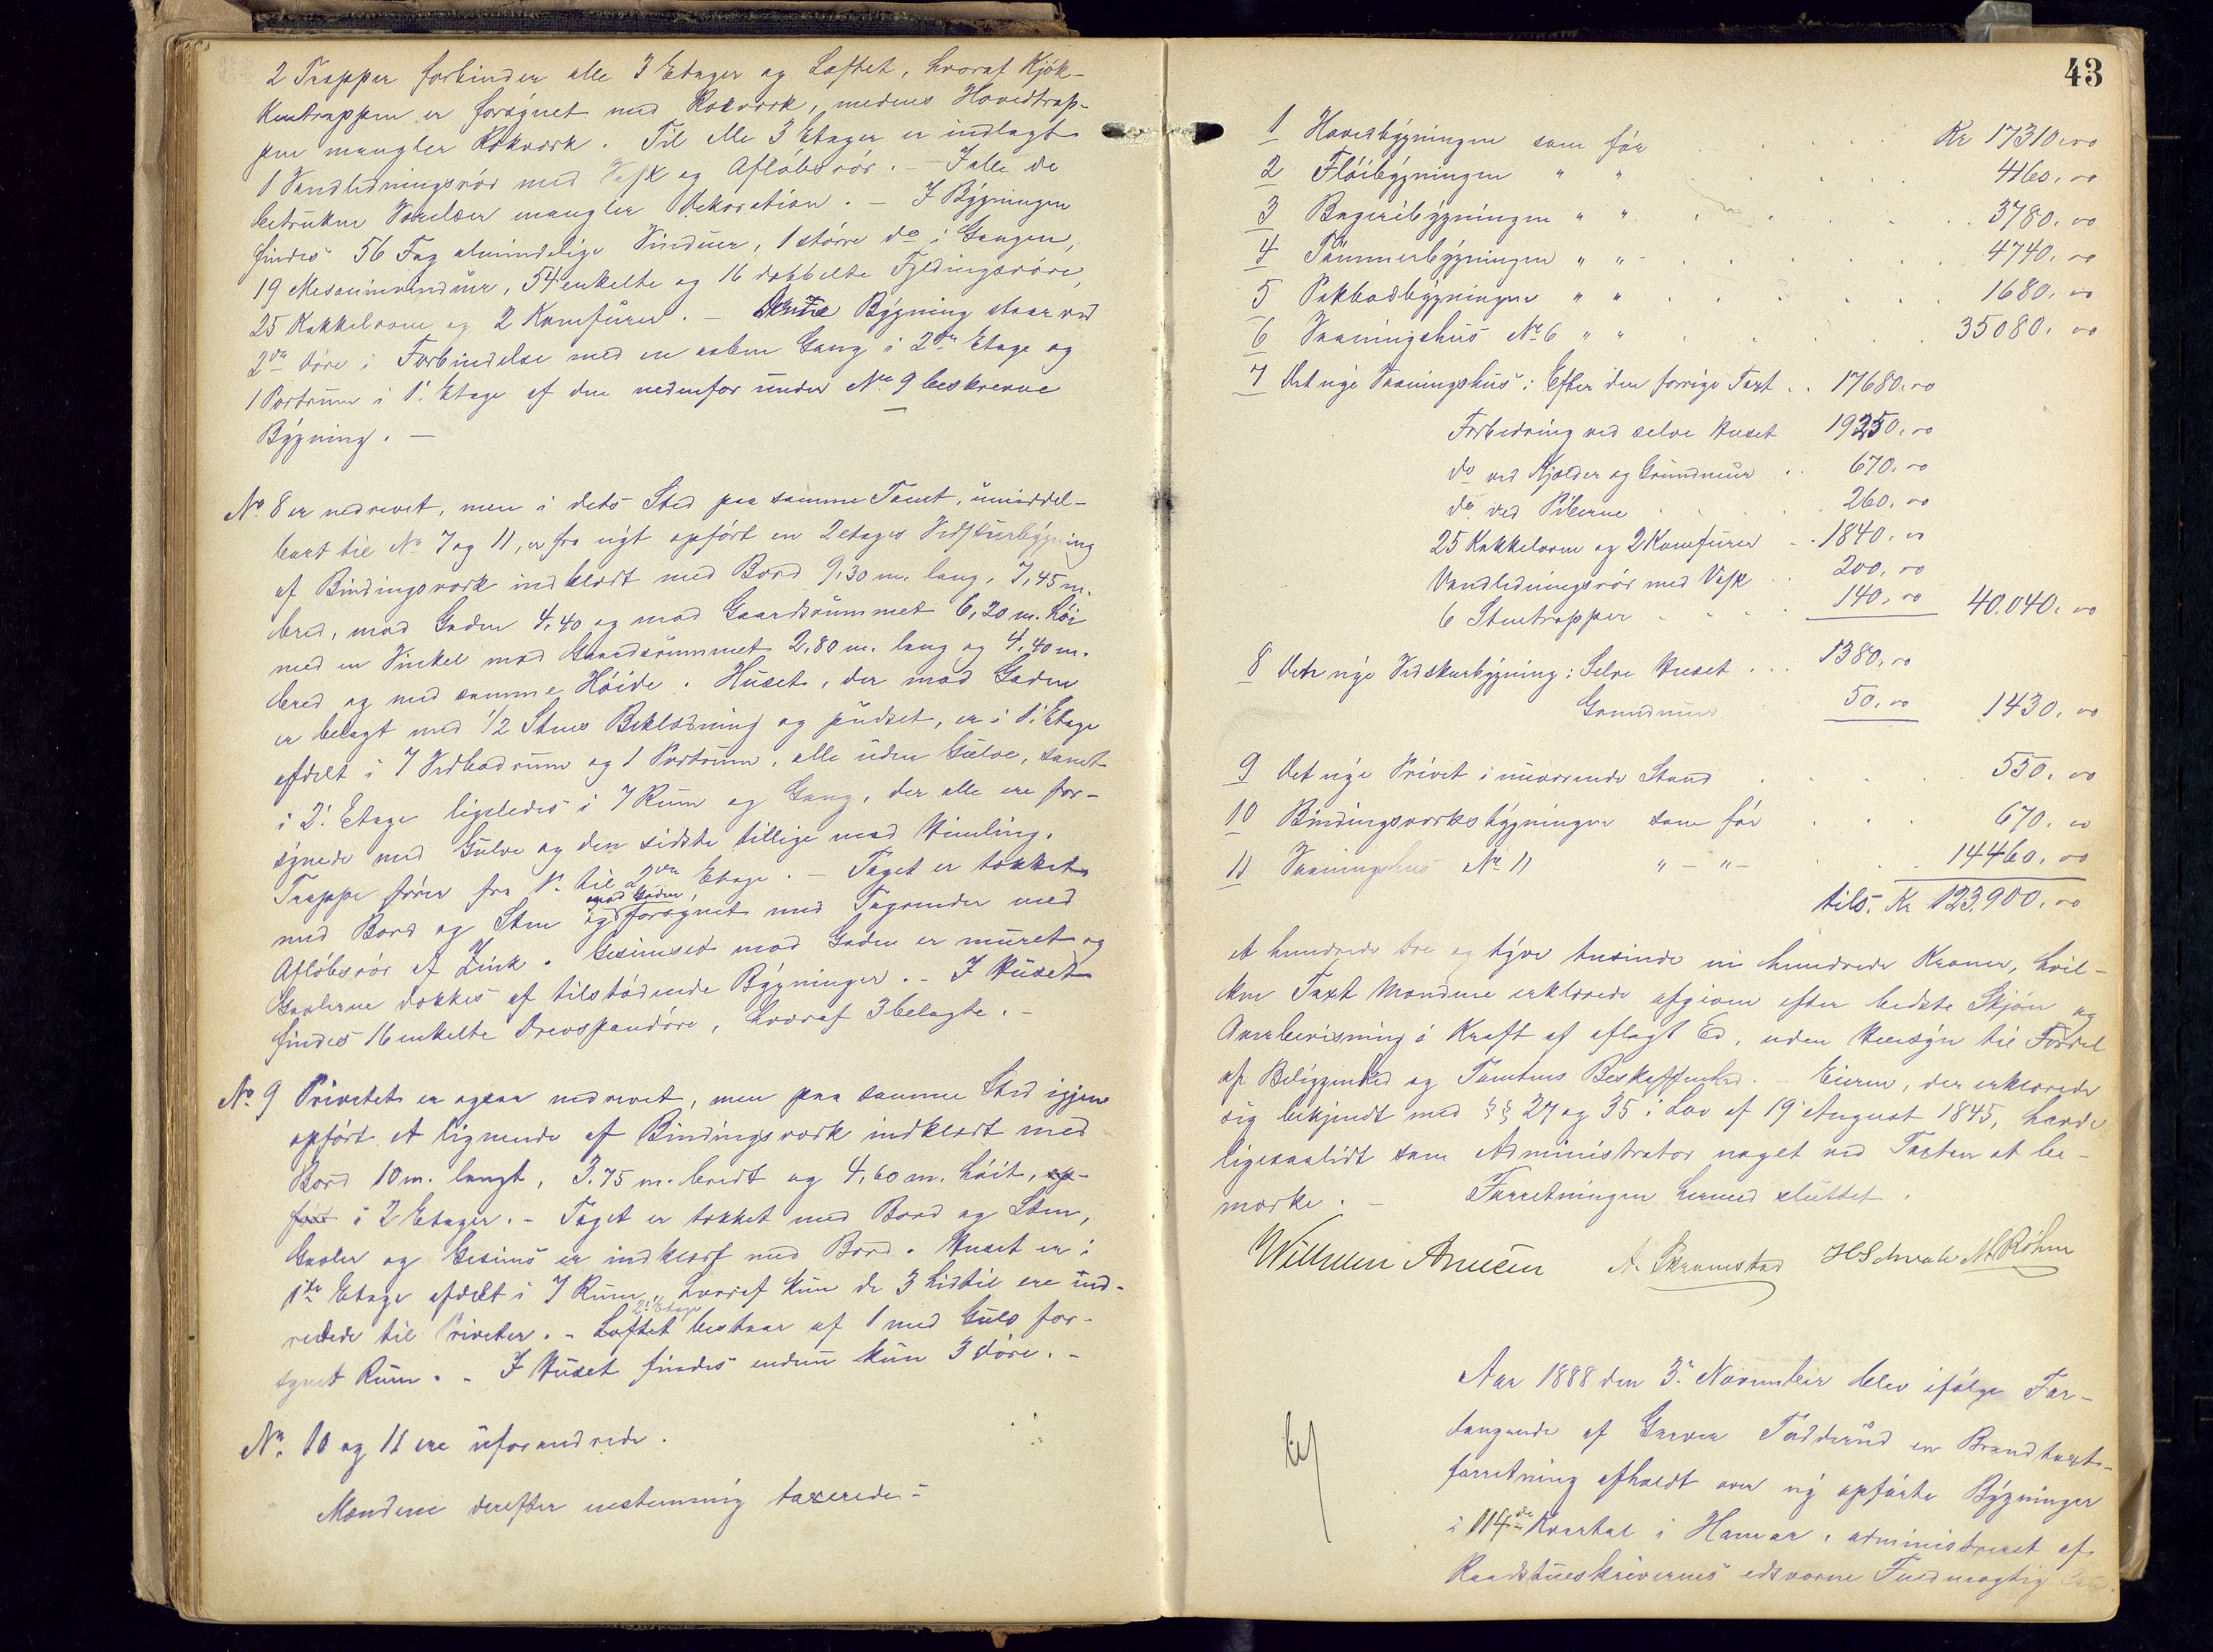 2 Trapper forbinder alle 3 Etager og Loftet, hvoraf Kjøk-
kentrappen er forsynet med Rækværk, medens Hovedtrap-
pen mangler Rækværk. Til alle 3 Etager er indlagt
1 Vandledningsrør med Vask og Afløbsrør. - I alle de
betrukne Værelser mangler Dekoration. - I Bygningen
findes 56 Fag almindelige Vinduer, 1 større do i Gangen,
19 Mesaninvinduer, 54 enkelte og 16 dobbelte Fyldingsdøre,
25 Kakkelovne og 2 Komfurer. - Denne Bygning staar ved
2de Døre i Forbindelse med en aaben Gang i 2den Etage og
1 Portrum i 1. Etage af den nedenfor under No 9 beskrevne
Bygning. -
No 8 er nedrevet, men i dets Sted paa samme Tomt, umiddel-
bart til No 7 og 11, er fra nyt opført en 2 etages Vedskurbygning
af Bindingsværk indklædt med Bord 9,30 m. lang, 7,45 m.
bred, mod Gaden 4,40 og mod Gaardsrummet 6,20 m. høi
med en Vinkel mod Gaardsrummet 2,80 m. lang og 4,40 m.
bred og med samme Høide. Huset, der mod Gaden
er belagt med 1/2 Stens Beklædning og pudset, er i 1. Etage
afdelt i 7 Vedbodrum og 1 Portrum, alle uden Gulve, samt
i 2. Etage ligeledes i 7 Rum og Gang, der alle ere for-
synede med Gulve og den sidste tillige med Himling.
Trappe fører fra 1. til 2den Etage. - Taget er tækket
med Bord og Sten og mod Gaden forsynet med Tagrender med
Afløbsrør af Zink. Gesimset mod Gaden er muret og
Gavlerne dækkes af tilstødende Bygninger. - I Huset
findes 16 enkelte Drevspandøre, hvoraf 3 belagte. -
No 9 Privetet er ogsaa nedrevet, men paa samme Sted igjen
opført et lignende af Bindingsværk indklædt med
Bord 10 m. langt, 3.75 m. bredt og 4,60 m. høit, op-
ført i 2 Etager. - Taget er tækket med Bord og Sten,
Gavler og Gesims er indklædt med Bord. Huset er i
1ste Etage afdelt i 7 Rum, hvoraf kun de 3 hidtil ere ind-
redede til Priveter. - Loftet 2. Etage bestaar af 1 med Gulv for-
synet Rum. - I Huset findes endnu kun 3 Døre. -
No. 10 og 11 ere uforandrede.
Mændene derefter enstemmig taxerede:
43
1 Hovedbygningen som før Kr 17310,00
2 Fløibygningen " " 4160,00
3 Bageribygningen " " 3780,00
4 Tømmerbygningen " " 4740,00
5 Pakbodbygningen " " 1680,00
6 Vaaningshus No 6 " " 35080,00
7 Det nye Vaaningshus: Efter den forrige Taxt 17680,00
Forbedring ved selve Huset 19250,00
do ved Kjælder og Grundmur 670,00
do ved Piberne 260,00
25 Kakkelovne og 2 Komfurer 1840,00
Vandledningsrør med Vask 200,00
6 Stentrapper 140,00 40,040,00
8 Den nye Vedskurbygning: Selve Huset 1380,00
Grundmur 50,00 1430,00
9 Det nye Privet i nuværende Stand 550,00
10 Bindingsværksbygningen som før 670,00
11 Vaaningshus No 11 " - " - 14460,00
tils. Kr 123,900,00
et hundrede tre og tyve tusinde ni hundrede Kroner, hvil-
ken Taxt Mændene erklærede afgiven efter bedste Skjøn og
Overbevisning i Kraft af aflagt Ed, uden Hensyn til Fordel
af Beliggenhed og Tomtens Beskaffenhed. - Eieren, der erklærede
sig bekjendt med §§ 27 og 35 i Lov af 19 August 1845, havde
ligesaalidt som Administrator noget ved Taxten at be-
mærke. - Forretningen hermed sluttet.
Wilhelm Arnesen A. Skramstad M. Røhne
Aar 1888 den 3. November blev ifølge For-
langende af Garver Todderud en Brandtaxt-
forretning afholdt over ny opførte Bygninger
i 114de Kvartal i Hamar, administreret af
Raadstueskriverens edsvorne Fuldmægtig